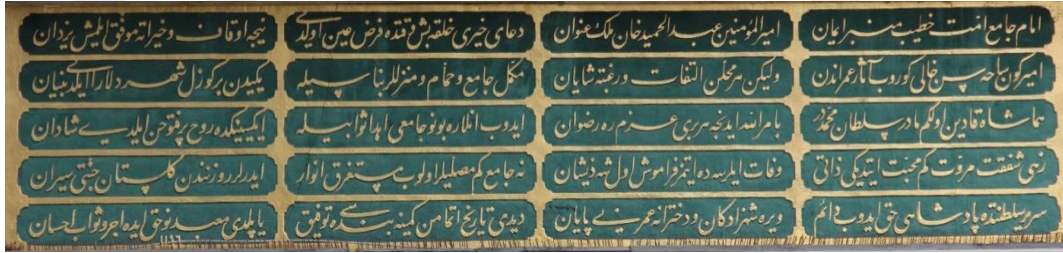 امام جامع امت خطیب منبر ایمان امیر المؤمنین عبد الحمید خان ملک عنوان دعای خیری خلقه بش وقتده فرض عین اولدی نیجه اوقاف و خیراته موفق ایلمش یزدان
امیرکون ساحه سن خالی کوروب آثار عمراندن ولیکن هر محلدن التفات و رغبته شایان مکمل جامع و حمام و منزللر بنا سیله یکیدن بر کوزل شهر دلارا ایلدی بنیان
هماشاه قادین اولکم مادر سلطان محمددر بامر الله ایدنجه هر بری عزم ره رضوان ایدوب انلاره بو نو جامعی اهدا ثوابیله ایکیسینکده روح پرفتوحن ایلدی شادان
زهی شفقت مروت کم محبت ایتدیکی ذاتی وفات ایلرسه ده ایتمز فراموش اول شه ذیشان نه جامع کم مصلیلر اولوب مستغرق انوار ایدرلر روزنندن کلستان جنتی سیران
سریر سلطنتده پادشاهی حق ایدوب دائم ویره شهزادکان و دخترانه عمر بی پایان دیدی تاریخ اتمامن کمینه بنده سی توفیق یاپلدی معبد نو حق ایده اجر و ثواب احسان